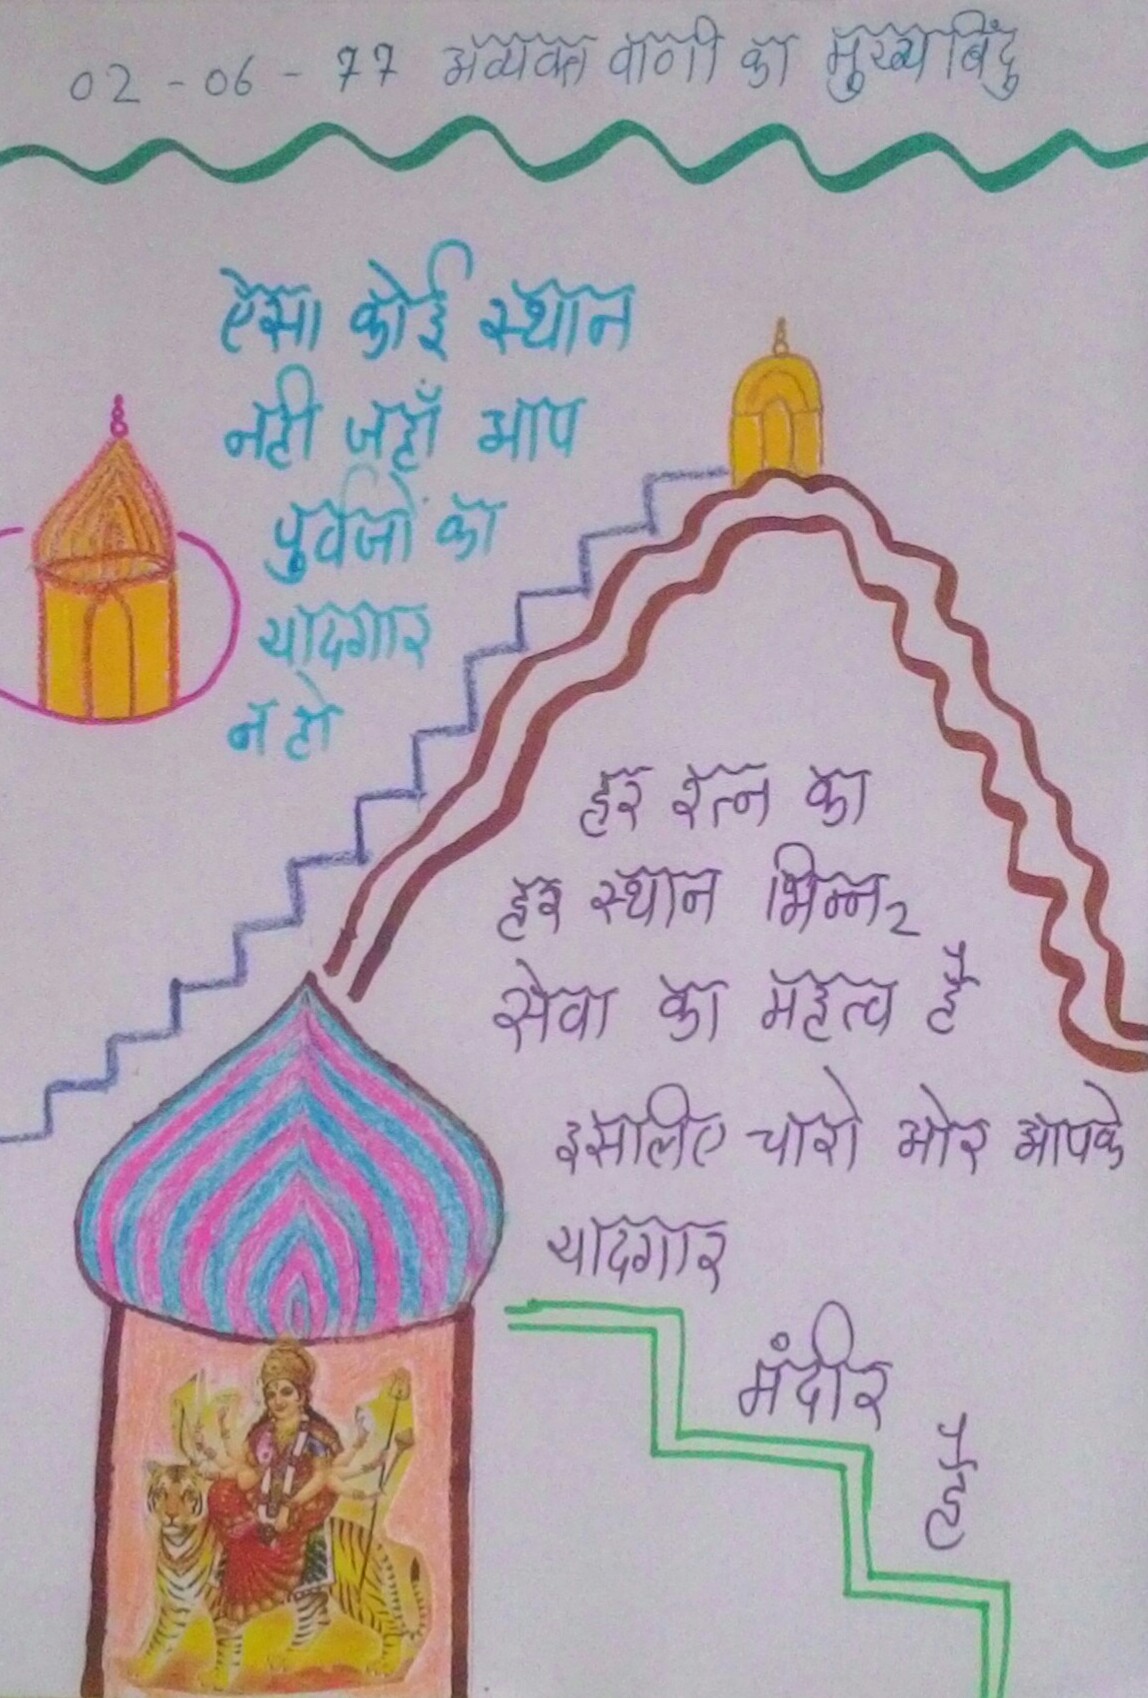 02-06-77 अव्यक्त वाणी का मुख्य बिंदु
ऐसा कोई स्थान
नही जहाँ आप
पुर्वजों का
यादगार
न हो
हर रत्न का
हर स्थान भिन्न२
सेवा का महत्व है
इसलिए चारो ओर आपके
यादगार
मंदीर
है